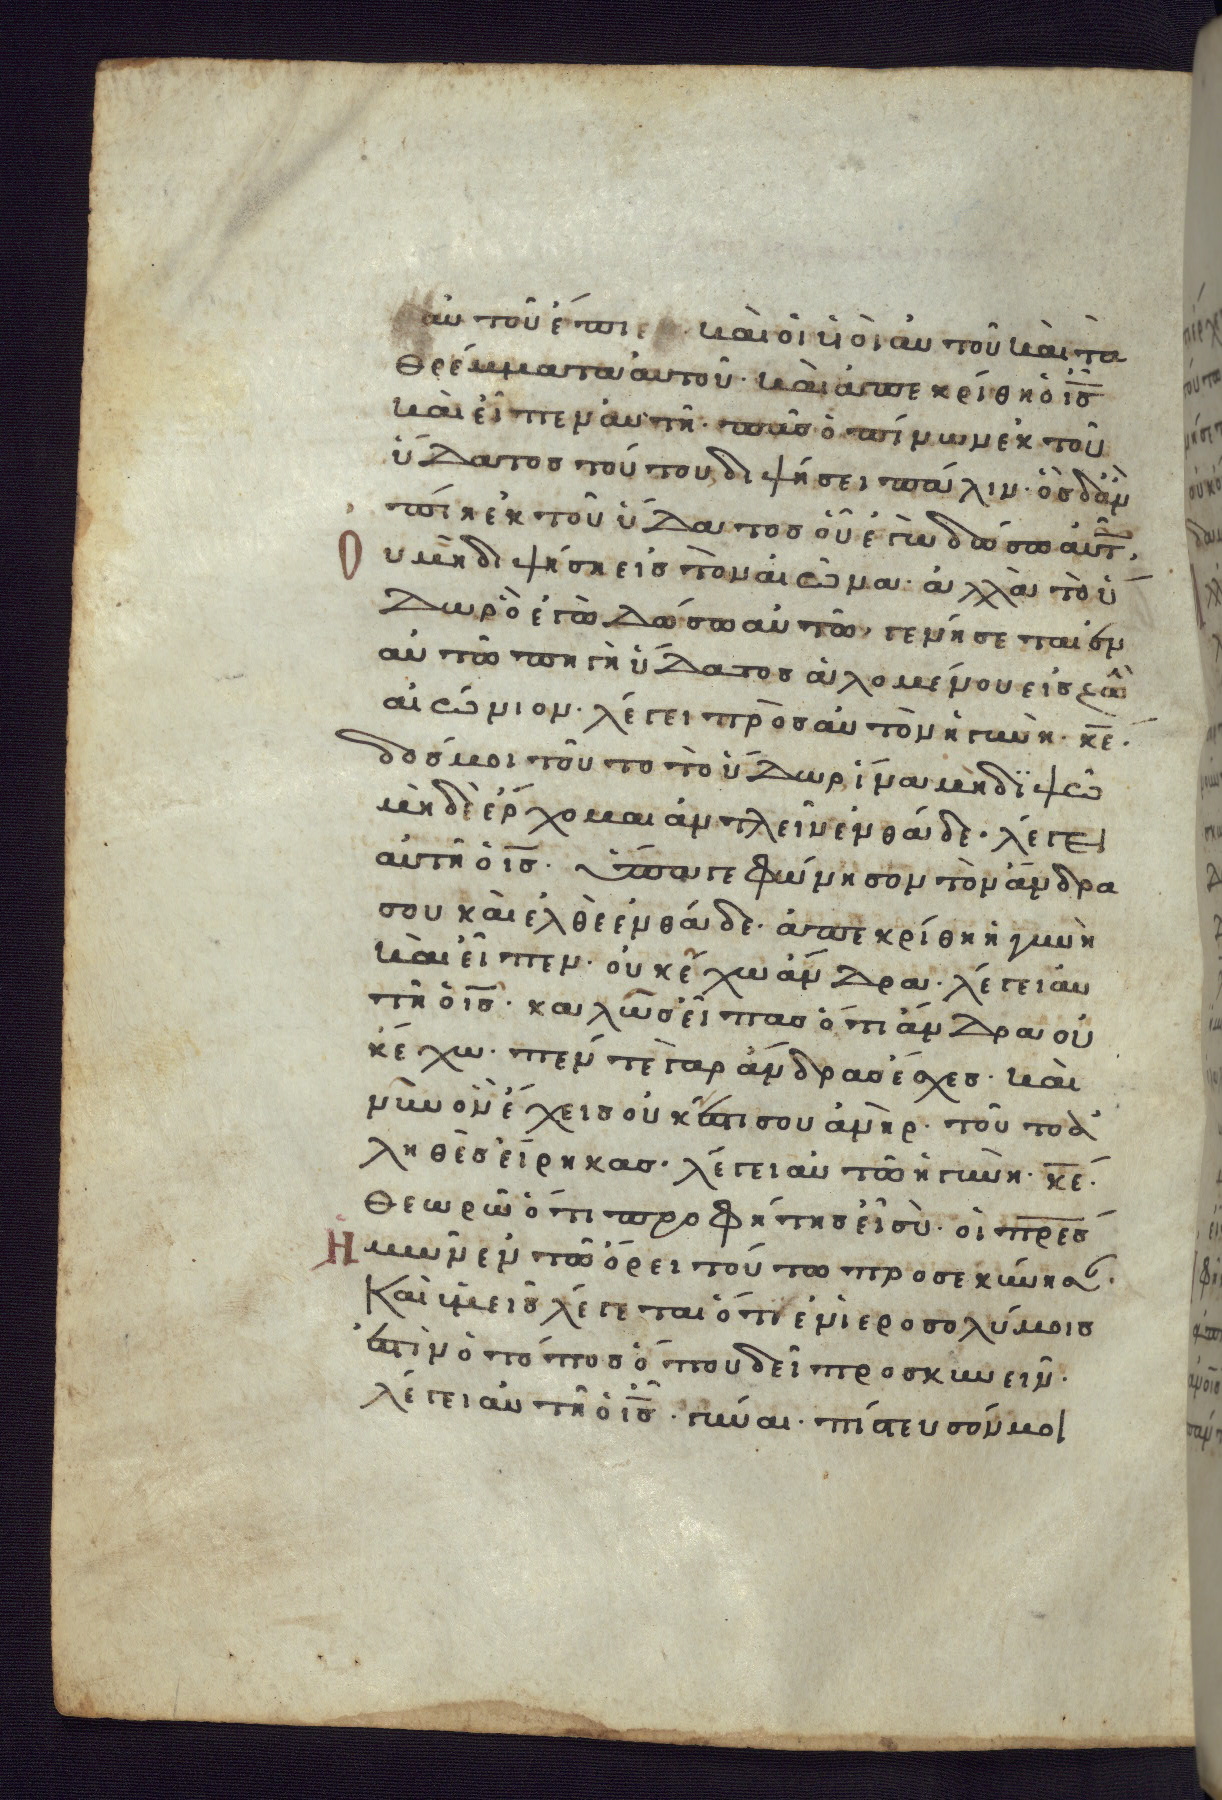 αὐτοῦ ἔπιε· καὶ οἱ ϋἱοὶ αὐτοῦ καὶ τὰ
θρέμματα αὐτοῦ· καὶ ἀπεκρίθη ὁ ι̅ς̅
καὶ εἶπεν αὐτῆ· πᾶς ὁ πίνων ἐκ τοῦ
ὕδατος τούτου διψήσει πάλιν· ὃς δ᾽ ἂν
πίη ἐκ τοῦ ὕδατος οὗ ἐγὼ δώσω αὐτ῀,
Ου μὴ διψήση εἰς τὸν αἰῶνα· ἀλλὰ τὸ ὕ
δωρ ὃ ἐγὼ δώσω αὐτῶ, γενήσεται ἐν
αὐτῶ πηγὴ ὕδατος ἁλομένου εἰς ζωὴν
αἰώνιον· λέγει πρὸς αὐτὸν ἡ γυνὴ· κ̅ε̅·
δός μοι τοῦτο τὸ ὕδωρ ἵνα μὴ διψῶ
μηδὲ ἔρχομαι ἀντλεῖν ἐνθάδε· λέγει
αὐτῆ ὁ ι̅ς̅· ὕπαγε φώνησον τὸν ἄνδρα
σου καὶ ἐλθὲ ἐνθάδε· ἀπεκρίθη ἡ γυνὴ
καὶ εἶπεν· οὐκ ἔχω ἄνδρα· λέγει αὐ
τῆ ὁ ι̅ς̅· καλῶς εἶπας ὅτι ἄνδρα οὐ
κ ἔχω· πέντε γὰρ ἄνδρας ἔσχες· καὶ
νῦν ὃν ἔχεις οὐκ ἔστι σου ἀνὴρ· τοῦτο ἀ
ληθὲς εἴρηκας· λέγει αὐτῶ ἡ γυνὴ· κ̅ε̅·
θεωρῶ ὅτι προφήτης εἶ σὺ· οἱ π̅ρ̅ε̅ς̅
Ημῶν ἐν τῶ ὄρει τούτω προσεκύνησαν·
Καὶ ὑμεῖς λέγεται ὅτι ἐν ἱεροσολύμοις
ἐστὶν ὁ τόπος ὅπου δεῖ προσκυνεῖν·
λέγει αὐτῆ ὁ ι̅ς̅· γύναι· πίστευσόν μοι